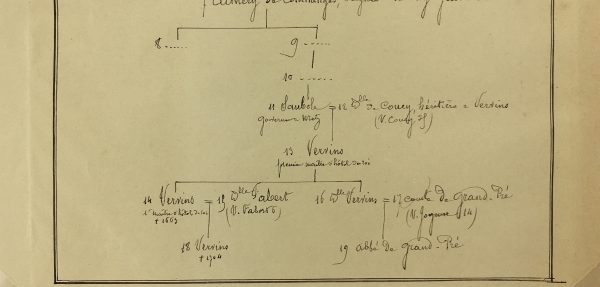 Aimery de Comminges,
8 ......
9 ......
10 ........
11 Saubole = 12 Dlle de Coucy, héritière de Vervins
gouverneur Metz (V. Coucy, 
13 Vervins
premier maître d'hôtel du roi
14 Vervins = 15 Dlle Fabert 16 Dlle Vervins = 17 comte de Grand-Pré
1er maître d'hôtel du roi (V. Fabert) (V. Joyeuse 14)
+ 1663
18 Vervins 19 abbé de Grand-Pré
+ 1704